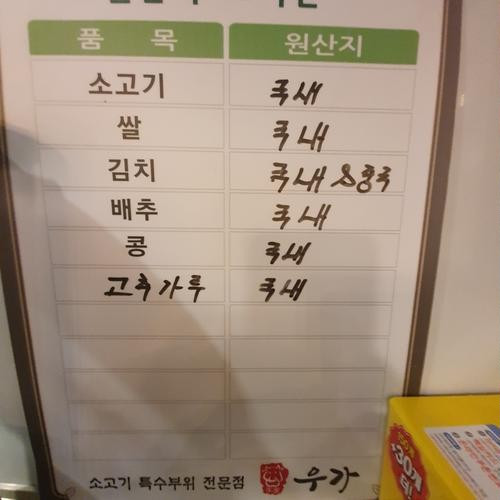 품 목 원산지
소고기 국내
쌀 국내
김치 국내 & 중국
배추 국내
콩 국내
고추가루 국내
소고기 특수부위 전문점 우가